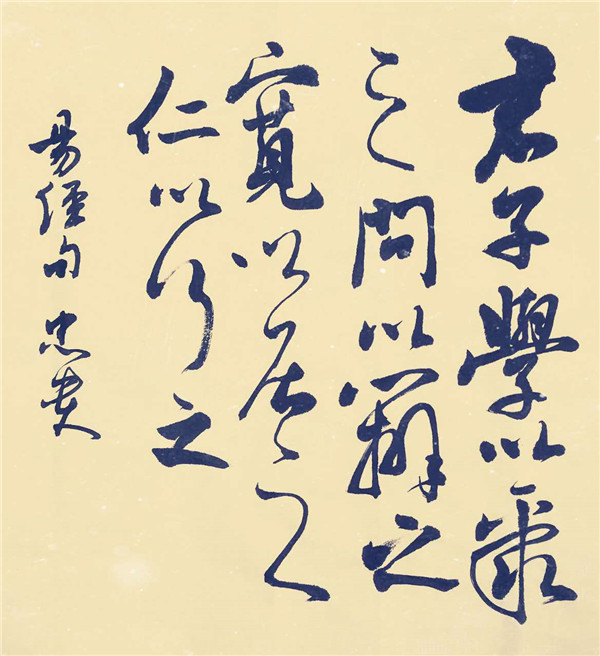 君子學以聚
之問以辯之
寬以居之
仁以行之
易經句 忠